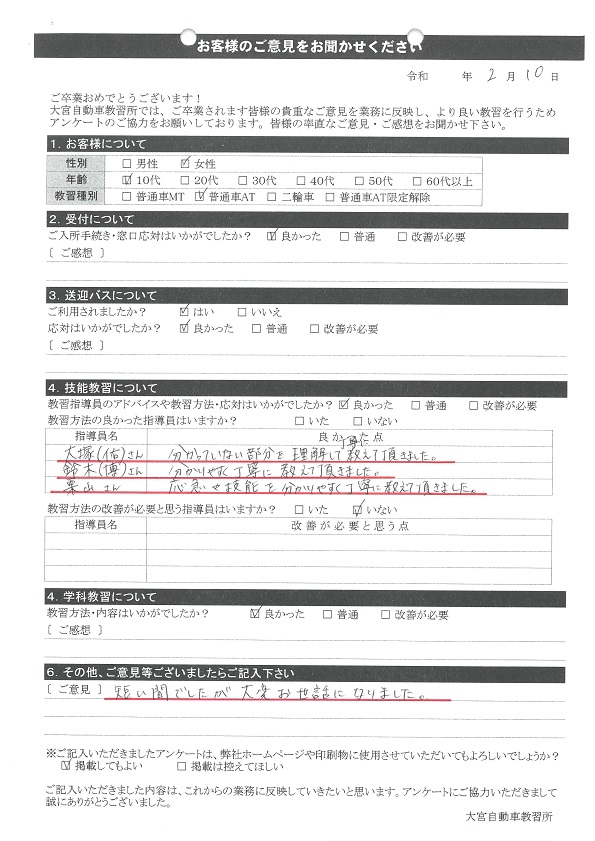 お客様のご意見をお聞かせください
令和 年 2 月 10 日
ご卒業おめでとうございます！
大宮自動車教習所では、ご卒業されます皆様の貴重なご意見を業務に反映し、より良い教習を行うため
アンケートのご協力をお願いしております。皆様の率直なご意見・ご感想をお聞かせ下さい。
1. お客様について
性別 □ 男性 ☑ 女性
年齢 ☑ 10代 □ 20代 □ 30代 □ 40代 □ 50代 □ 60代以上
教習種別 □ 普通車MT ☑ 普通車AT □ 二輪車 □ 普通車AT限定解除
2. 受付について
ご入所手続き・窓口応対はいかがでしたか？ ☑ 良かった □ 普通 □ 改善が必要
［ ご感想 ］
3. 送迎バスについて
ご利用されましたか？ ☑ はい □ いいえ
応対はいかがでしたか？ ☑ 良かった □ 普通 □ 改善が必要
［ ご感想 ］
4. 技能教習について
教習指導員のアドバイスや教習方法・応対はいかがでしたか？ ☑ 良かった □ 普通 □ 改善が必要
教習方法の良かった指導員はいますか？ □ いた □ いない
指導員名 良かった点
大塚(佑)さん 分かっていない部分を理解して丁寧に教えて頂きました。
鈴木(博)さん 分かりやすく丁寧に教えて頂きました。
栗山さん 応急や技能を分かりやすく丁寧に教えて頂きました。
教習方法の改善が必要と思う指導員はいますか？ □ いた ☑ いない
指導員名 改善が必要と思う点
4. 学科教習について
教習方法・内容はいかがでしたか？ ☑ 良かった □ 普通 □ 改善が必要
［ ご感想 ］
6. その他、ご意見等ございましたらご記入下さい
［ ご意見 ］ 短い間でしたが大変お世話になりました。
※ご記入いただきましたアンケートは、弊社ホームページや印刷物に使用させていただいてもよろしいでしょうか？
☑ 掲載してもよい □ 掲載は控えてほしい
ご記入いただきました内容は、これからの業務に反映していきたいと思います。アンケートにご協力いただきまして
誠にありがとうございました。
大宮自動車教習所